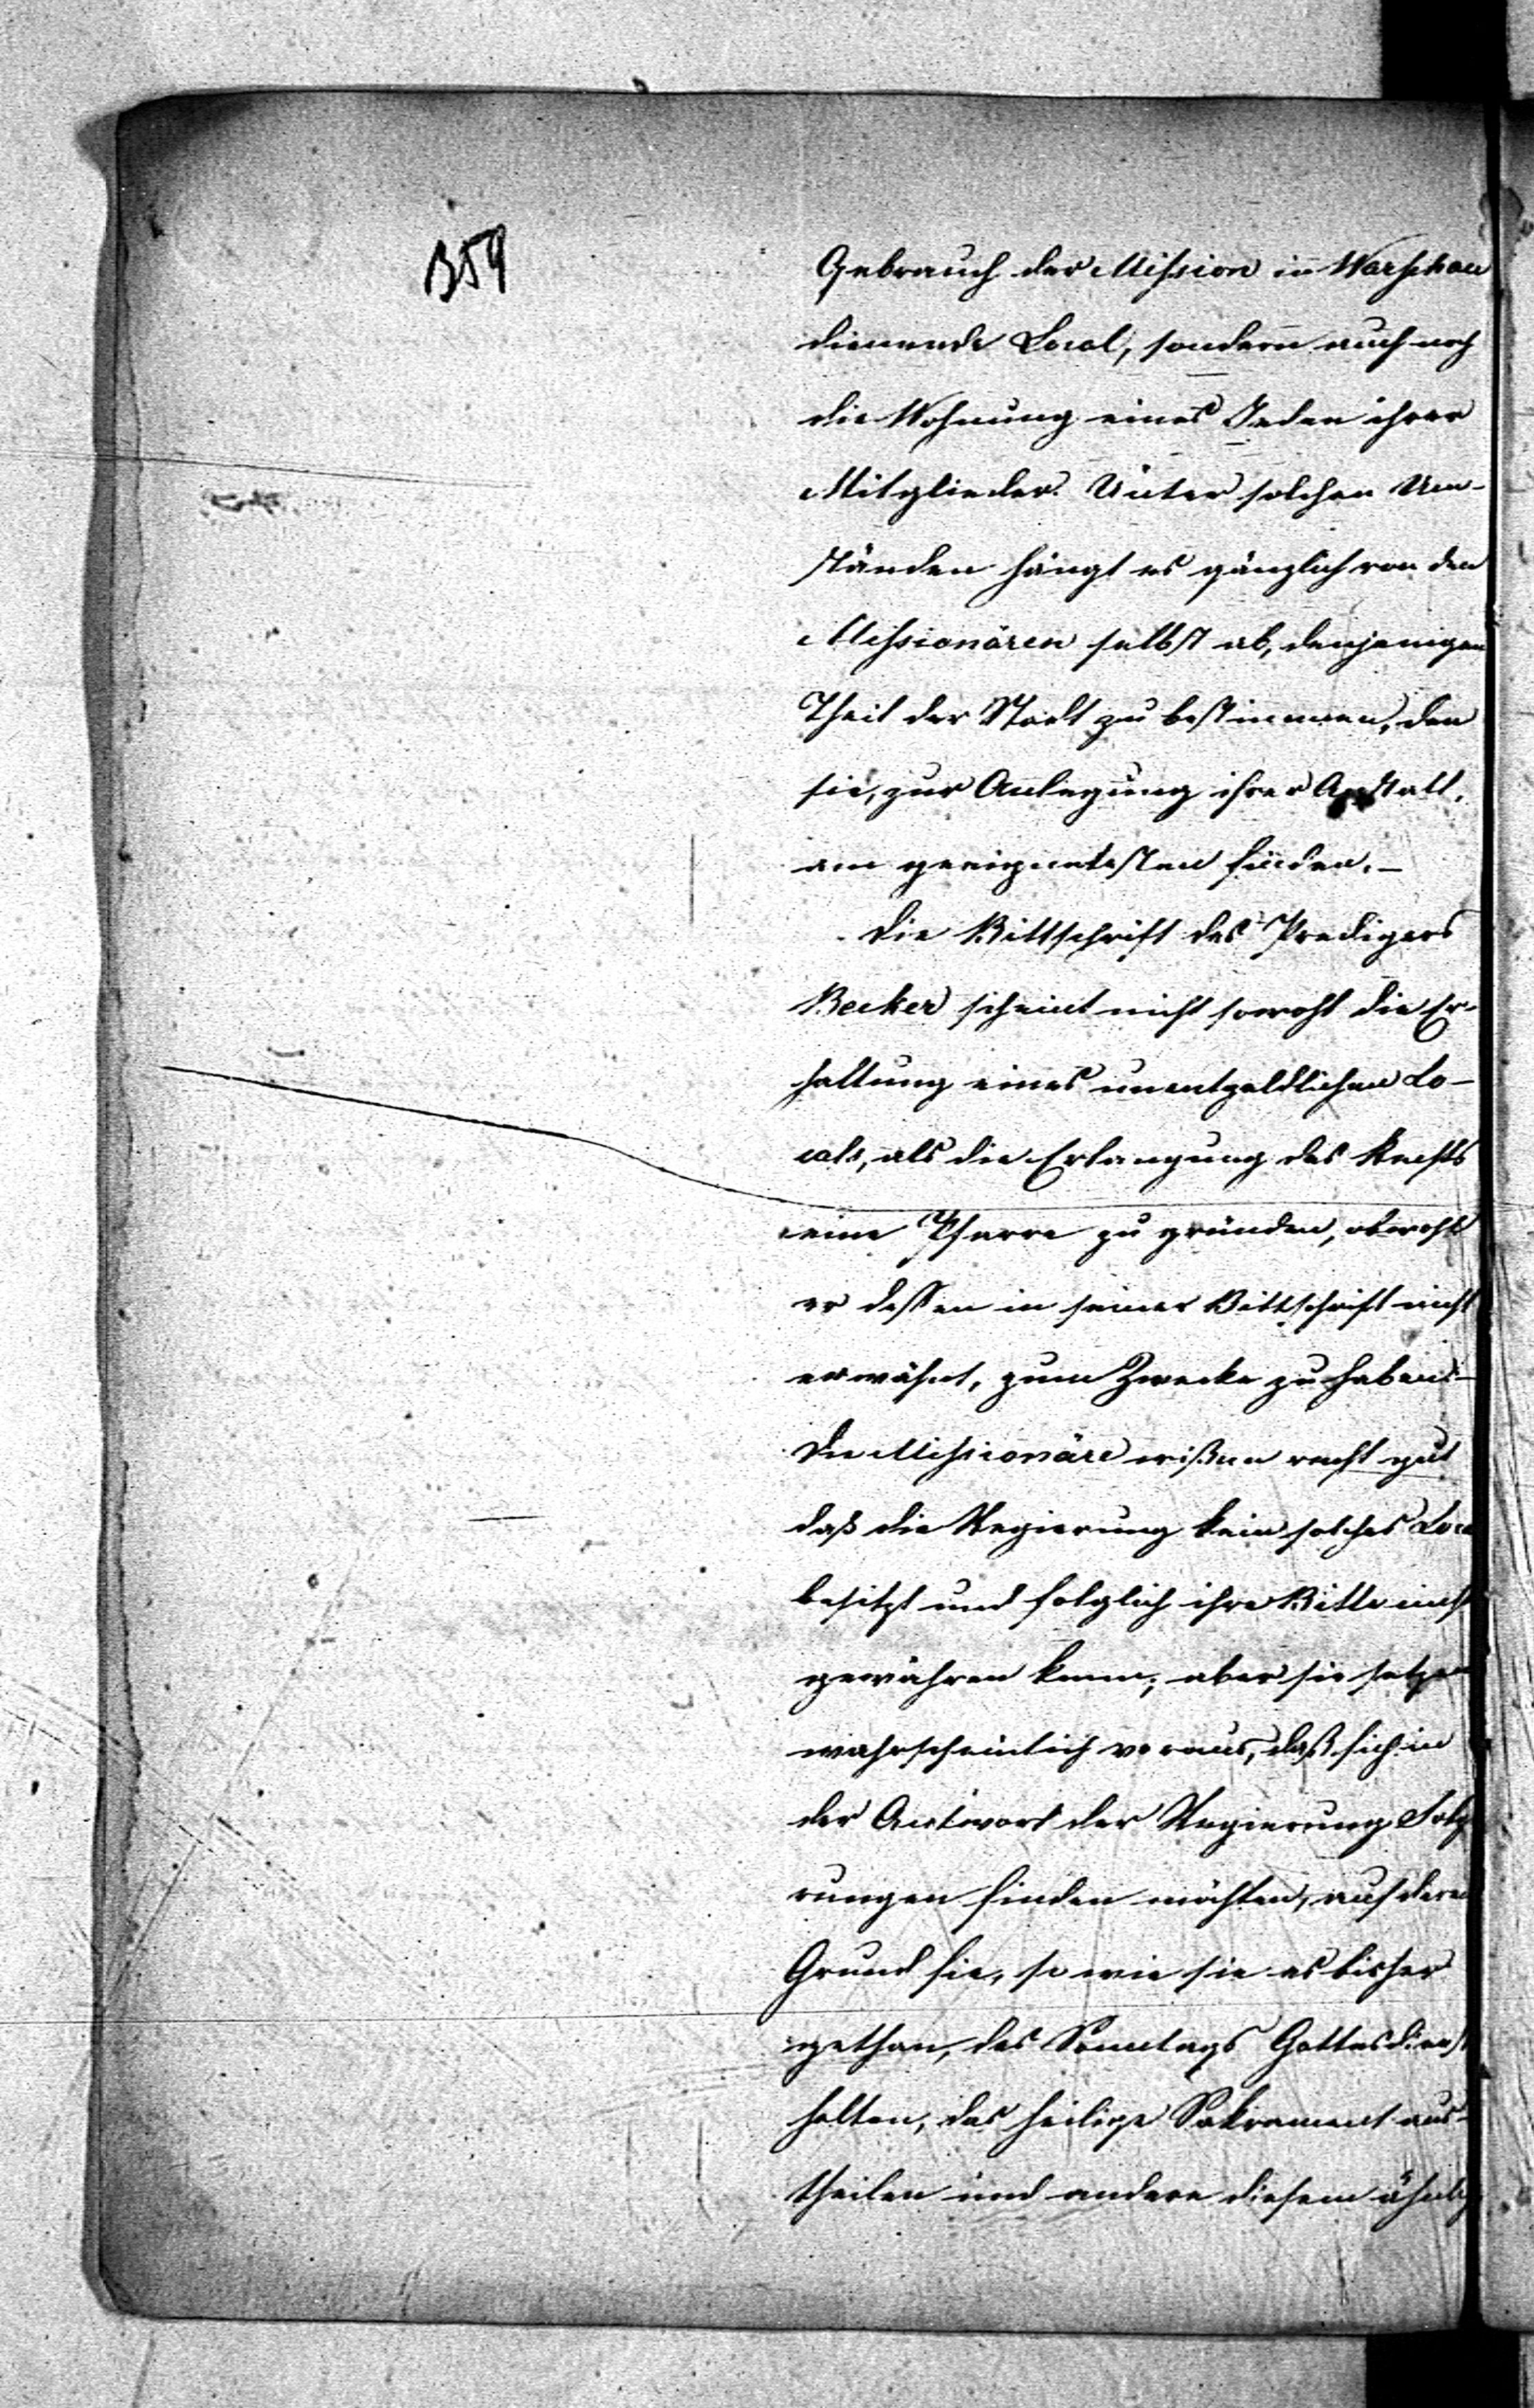 354
Gebrauch der Mission in Warschau
dienende Local, sondern auch noch
die Wohnung eines Jeden ihrer
Mitglieder. Unter solchen Um-
ständen hängt es gänzlich von den
Missionären selbst ab, denjenigen
Theil der Stadt zu bestimmen, den
sie, zur Anlegung ihrer Anstalt,
am geeignetesten finden.–
Die Bittschrift des Predigers
Becker scheint nicht sowohl die Er-
haltung eines unentgeldlichen Lo-
cals, als die Erlangung des Rechts
eine Pfarre zu gründen, obwohl
er dessen in seiner Bittschrift nicht
erwähnt, zum Zwecke zu haben.–
Die Missionäre wißen recht gut
daß die Regierung kein solches Loca
besitzt und folglich ihre Bitte nicht
gewähren kann; aber sie setzen
wahrscheinlich voraus, daß sich in
der Antwort der Regierung Folge
rungen finden möchten, auf deren
Grund sie, so wie sie es bisher
gethan, des Sonntags Gottesdienst
halten, das heilige Sakrament aus-
theilen und andere diesem ähnlich